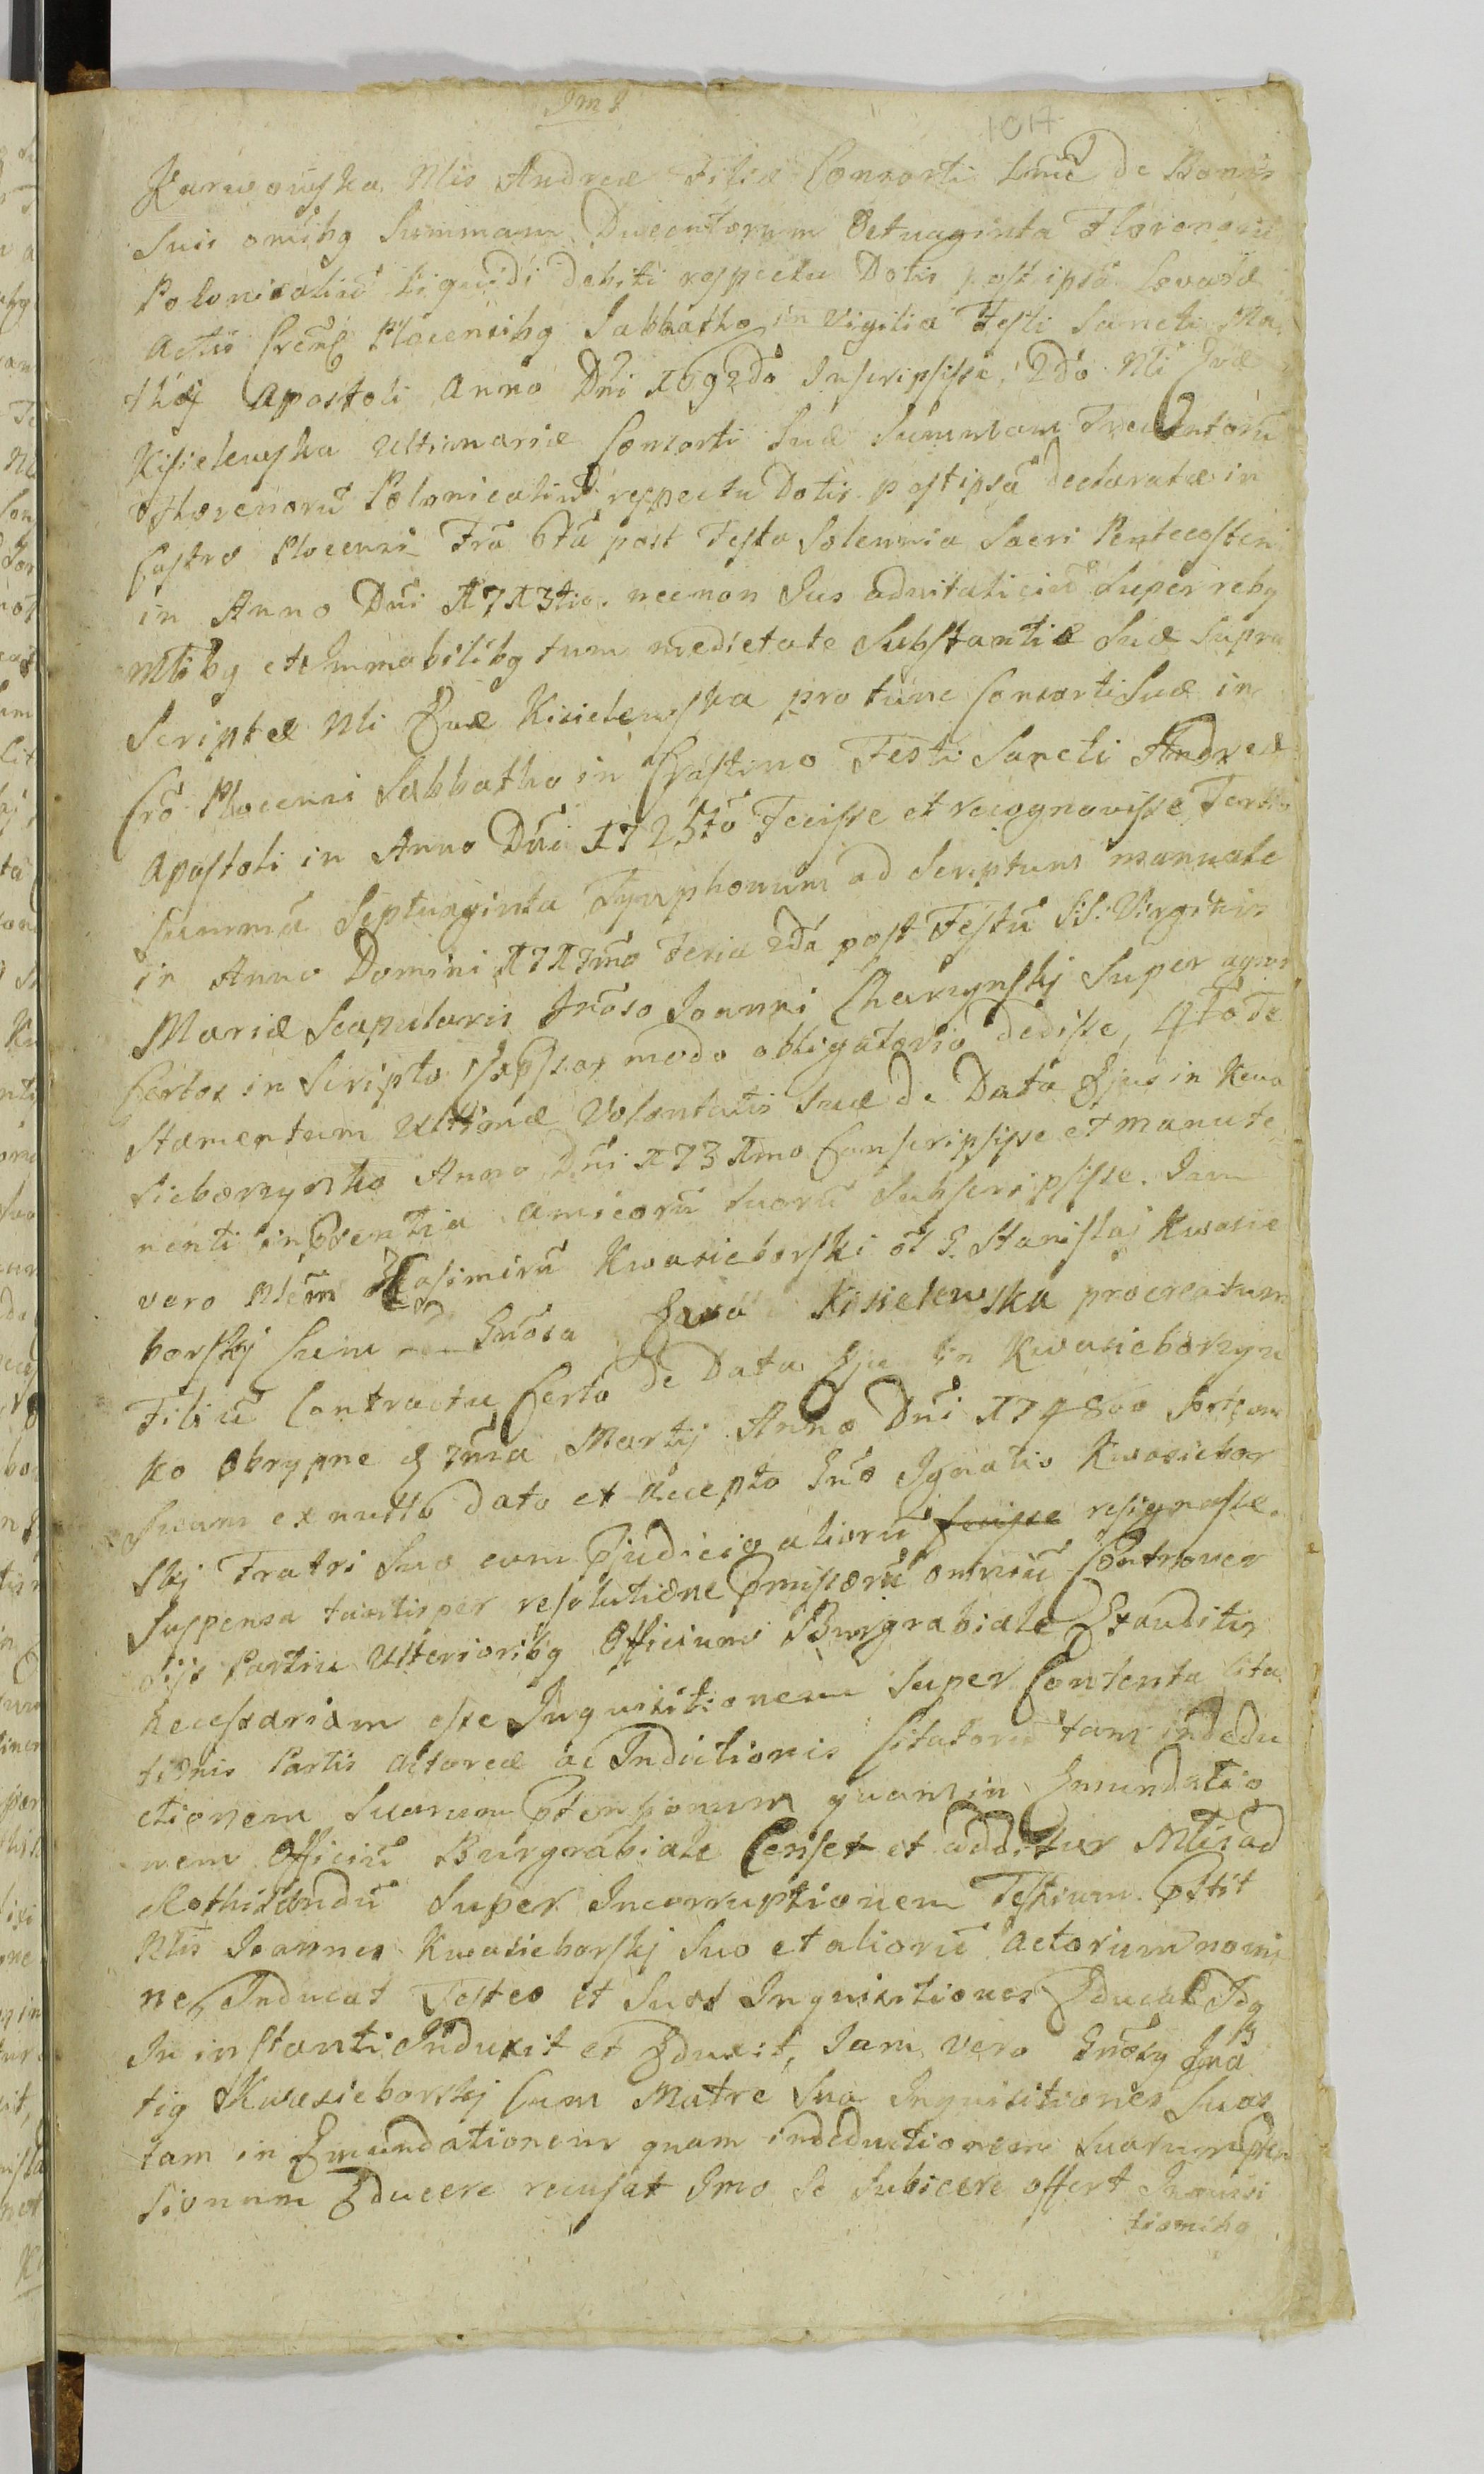 Jm J
1017
Karwowska Mlis Andreæ Filia Consorti Suæ de Bonis
Suis omibg Summam Ducentorum Octuaginta Florenorũ
Polonicaliũ liquidi debiti respectu Dotis post ipsã levatæ
Actis Plocensibg Sabbatho in Vigilia Festi Sancti Ma
thæj Apostoli Anno Dñi 1692dõ Inscripsisse, 2dõ Mli Evæ
Kisielewska Ultimariæ Consorti Suæ Summam Trecentorũ
Florenorũ Polonicaliũ respectu Dotis post ipsã declaratæ in
Castro Plocensi Fria 6tã post Festa Solennia Sacri Pentecosten
in Anno Dñi 1713tio. necnon Jus advitaliciũ Super rebg
Mlibg et Immobilibg tum medietate Substantiæ Suæ Supra
Scriptæ Mli Evæ Kisielewska pro tunc Consorti Suæ in
Crõ Plocensi Sabbatho in Crastino Festi Sancti Andreæ
Apostoli in Anno Dñi 1725tõ Fecisse et recognovisse, Tertio
Summã Septuaginta Tymphonum ad Scriptum manuale
in Anno Domini 1717mõ Feria 2dã post Festũ S:S: Virginis
Mariæ Scapularis Gnõso Joanni Charzynskj Super agros
Certos in Scripto Expssos modo obligatorio dedisse, 4tõ Te
stamentum Ultimæ Voluntatis Suæ de Data Ejus in Kwa
sieborzynko Anno Dñi 1731mo Conscripsisse et manute
nenti in Psentia Amicorũ Suorũ Subscripsisse. Jam
vero Nlẽm Kasimirũ Kwasieborski õl G. Stanislai Kwasie
borskj Cum Gnõsa Eva Kisielewska procreatum
Filiũ Contractu Certo de Data Ejus in Kwasieborzyn
ko Obrypne 7mã Martij Anno Dñi 1748vo Sortem
Suam ex nullo dato et accepto Gnõ Ignatio Kwasiebor
skj Fratri Suo cum Pjudicio aliorũ resignasse.
Suspensa tantisper resolutione Pmissorũ omniũ Controver
sijs Partiũ Ulterioribg Officium Burgrabiale Exauditis
necessariam esse Inquisitionem Super Contenta Cita
tionis Partis Actoreæ ac Inductionis Citatorũ tam in dedu
ctionem Suarum Ptensionum quam in Emundatio
nem Officiũ Burgrabiale Censet et additur Mlis ad
Rothisandũ Super Incorruptionem Testium. Pstit
Nlis Joannes Kwasieborskj Suo et aliorũ Actorum nomi
ne, Inducat Testes et Suas Inquisitiones Educat Idq
In instanti Induxit et Eduxit, Jam vero Gnõsg Igna
tig Kwasieborskj Cum Matre Sua Inquisitiones Suas
tam in Emundationem quam in deductionem Suarum Pten
sionum Educere recusat Imo Se Subicere offert Inquisi
tionibg